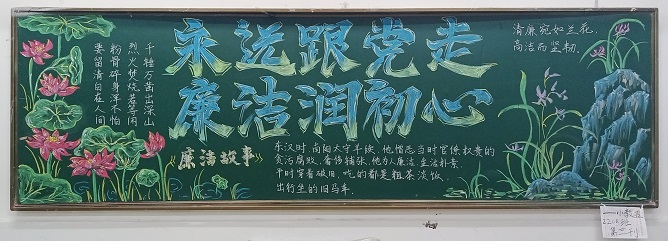 永远跟党走
廉洁润初心
千锤万凿出深山
烈火焚烧若等闲
粉骨碎身浑不怕
要留清白在人间
清廉宛如兰花,
高洁而坚韧.
《廉洁故事》
东汉时,南阳太守羊续,他憎恶当时官僚权贵的
贪污腐败,奢侈铺张,他为人廉洁,生活朴素.
平时穿着破旧,吃的都是粗茶淡饭,
出行坐的旧马车.
第三刊